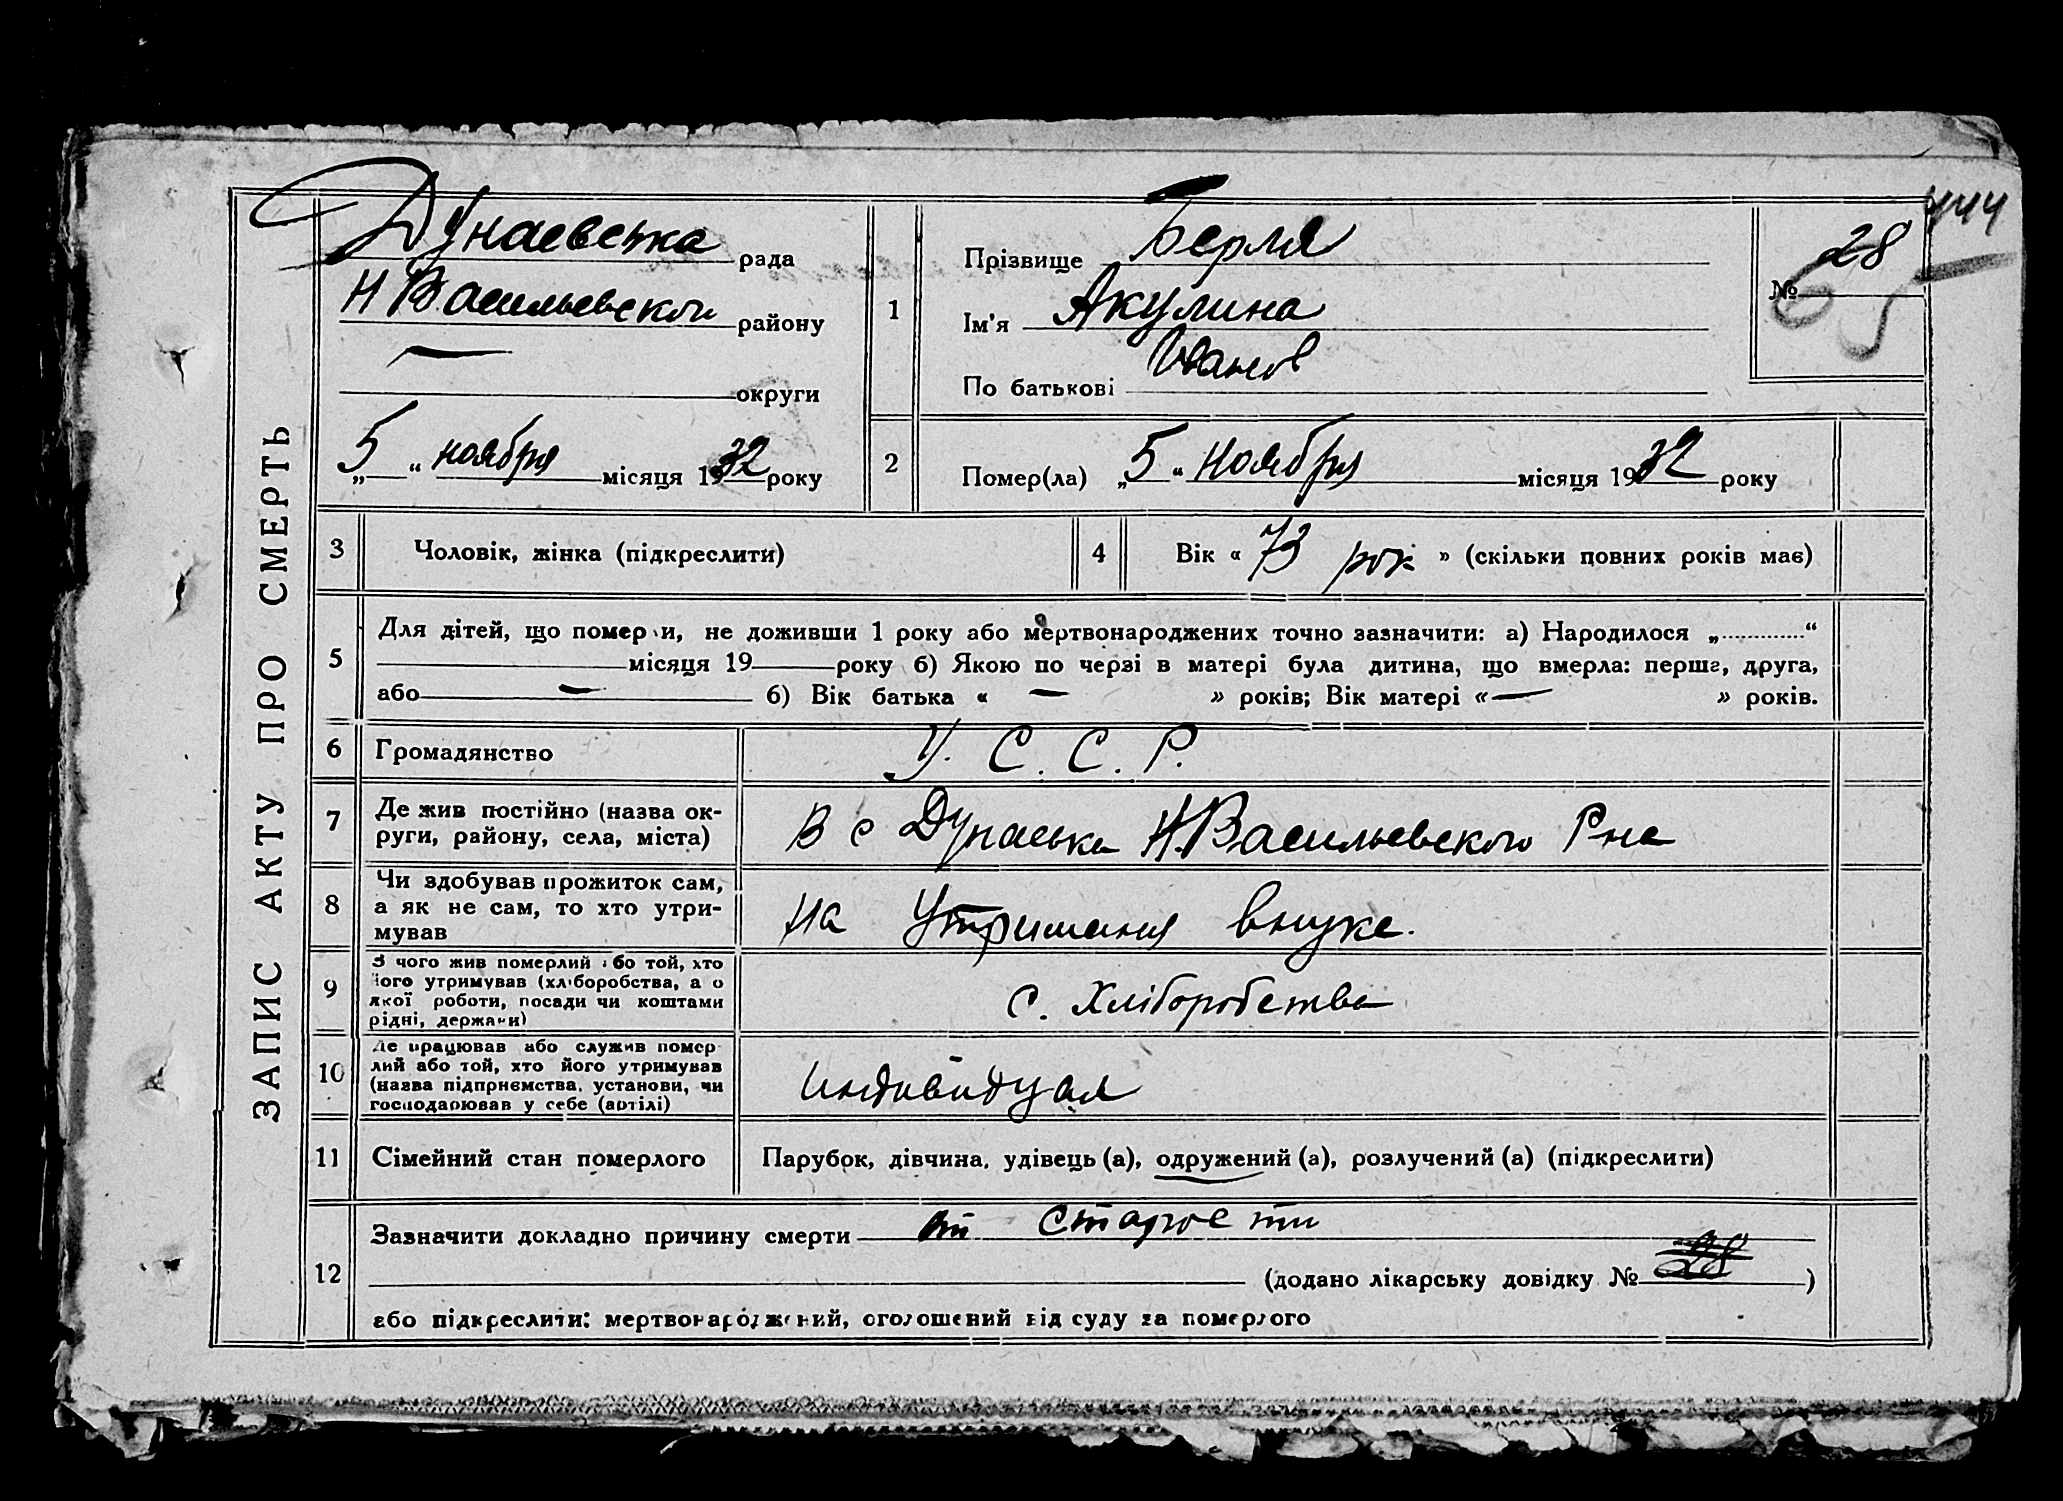 ЗАПИС АКТУ ПРО СМЕРТЬ
Дунаевська рада
Н Васильевского району
— округи
„5“ ноября місяця 1932 року
444
№ 28
65
1
Прізвище
Ім'я Акулина
По батькові Иванов
2 Помер(ла) „5“ ноября місяця 1932 року
3 Чоловік, жінка (підкреслити)
4 Вік « 73 рок » (скільки повних років має)
5 Для дітей, що померли, не доживши 1 року або мертвонароджених точно зазначити: а) Народилося „............“
місяця 19 року б) Якою по черзі в матері була дитина, що вмерла: перша, друга,
або — б) Вік батька « — » років; Вік матері « — » років.
6 Громадянство У. С. С. Р.
7 Де жив постійно (назва ок-
руги, району, села, міста)
В с Дунаевка Н.Васильевского Р-на
8 Чи здобував прожиток сам,
а як не сам, то хто утри-
мував
на Утримания внука.
9 З чого жив померлий або той, хто
його утримував (хліборобства, а о
якої роботи, посади чи коштами
рідні, держави)
с. Хліборобства
10 Де працював або служив помер-
лий або той, хто його утримував
(назва підприємства, установи, чи
господарював у себе (артілі)
индивидуал
11 Сімейний стан померлого Парубок, дівчина, удівець (а), одружений (а), розлучений (а) (підкреслити)
12 Зазначити докладно причину смерти от старости
(додано лікарську довідку № 28)
або підкреслити: мертвонароджений, оголошений від суду за померлого